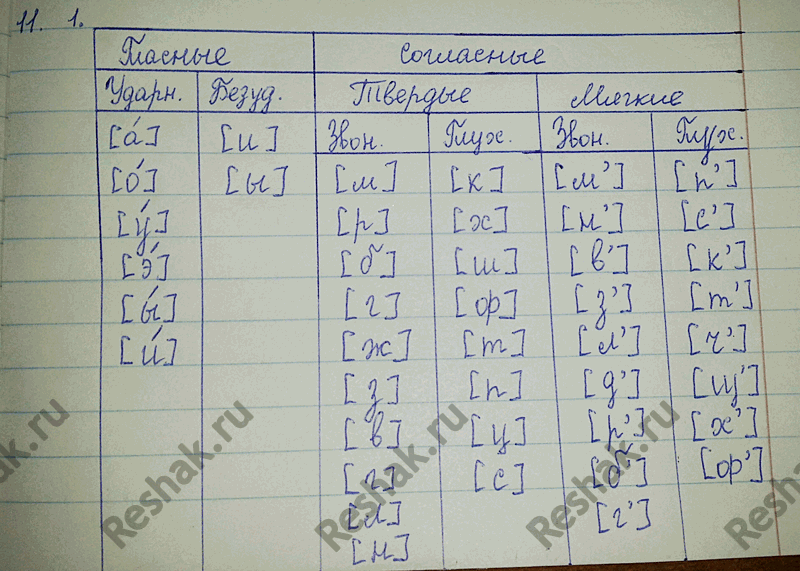 11. 1.
Гласные Согласные
Ударн. Безуд. Твердые Мягкие
[а́] [и] Звон. Глух. Звон. Глух.
[о́] [ы] [м] [к] [м'] [п']
[у́] [р] [х] [н'] [с']
[э́] [б] [ш] [в'] [к']
[ы́] [г] [ф] [з'] [т']
[и́] [ж] [т] [л'] [ч']
[з] [п] [д'] [щ']
[в] [ц] [р'] [х']
[г] [с] [б'] [ф']
[л] [г']
[н]
Reshak.ru
Reshak.ru
Reshak.ru
Reshak.ru